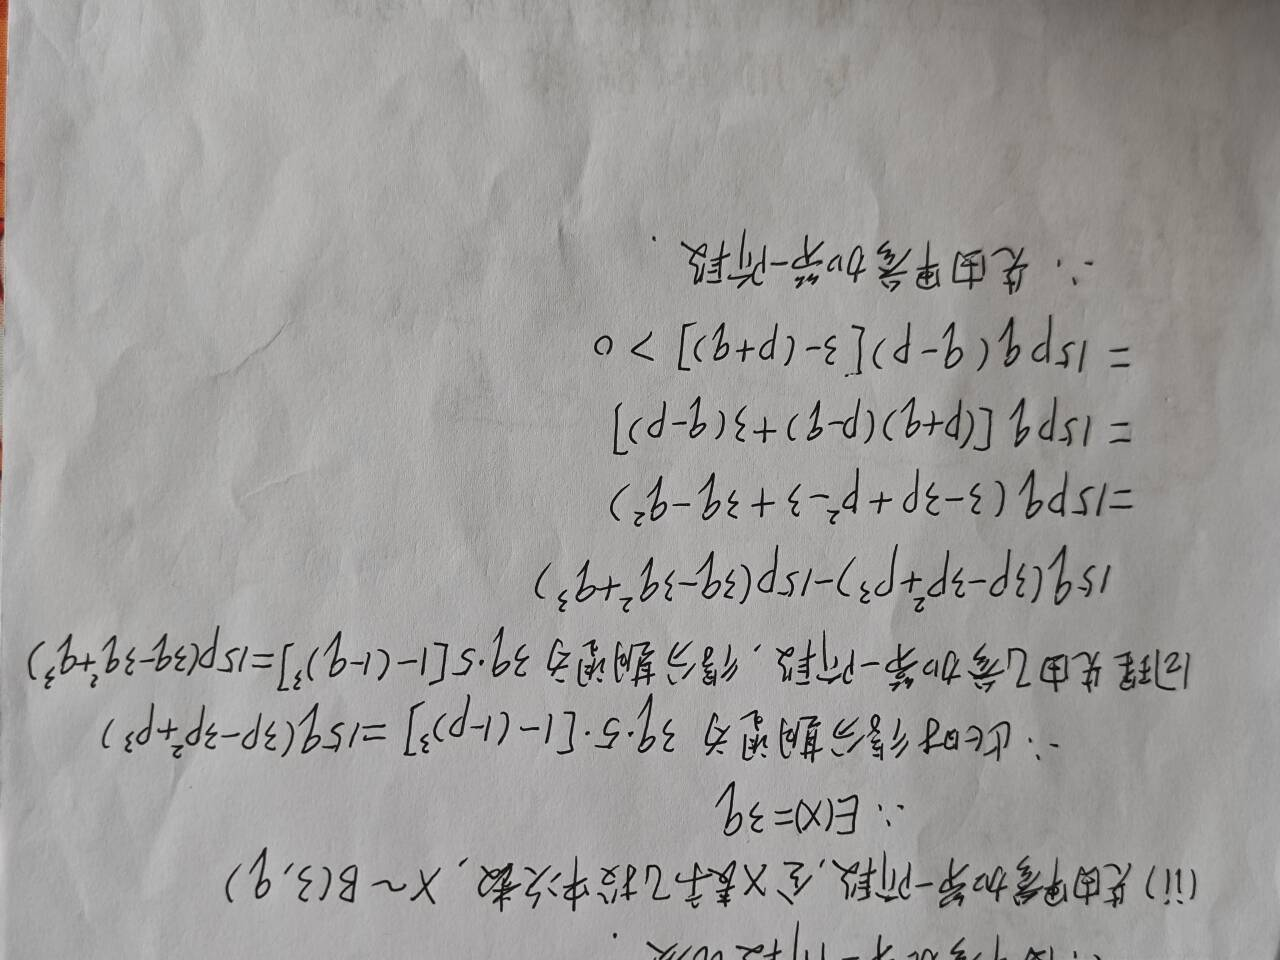 (ii) 先由甲参加第一阶段,令X表示乙投中次数, X~B(3,q)
∴ E(X)=3q
∴ 此时得分期望为 3q·5·[1-(1-p)³] =15q(3p-3p²+p³)
同理先由乙参加第一阶段,得分期望为 3q·5[1-(1-q)³]=15p(3q-3q²+q³)
15q(3p-3p²+p³)-15p(3q-3q²+q³)
=15pq(3-3p+p²-3+3q-q²)
= 15pq[(p+q)(p-q)+3(q-p)]
= 15pq(q-p)[3-(p+q)] > 0
∴ 先由甲参加第一阶段.